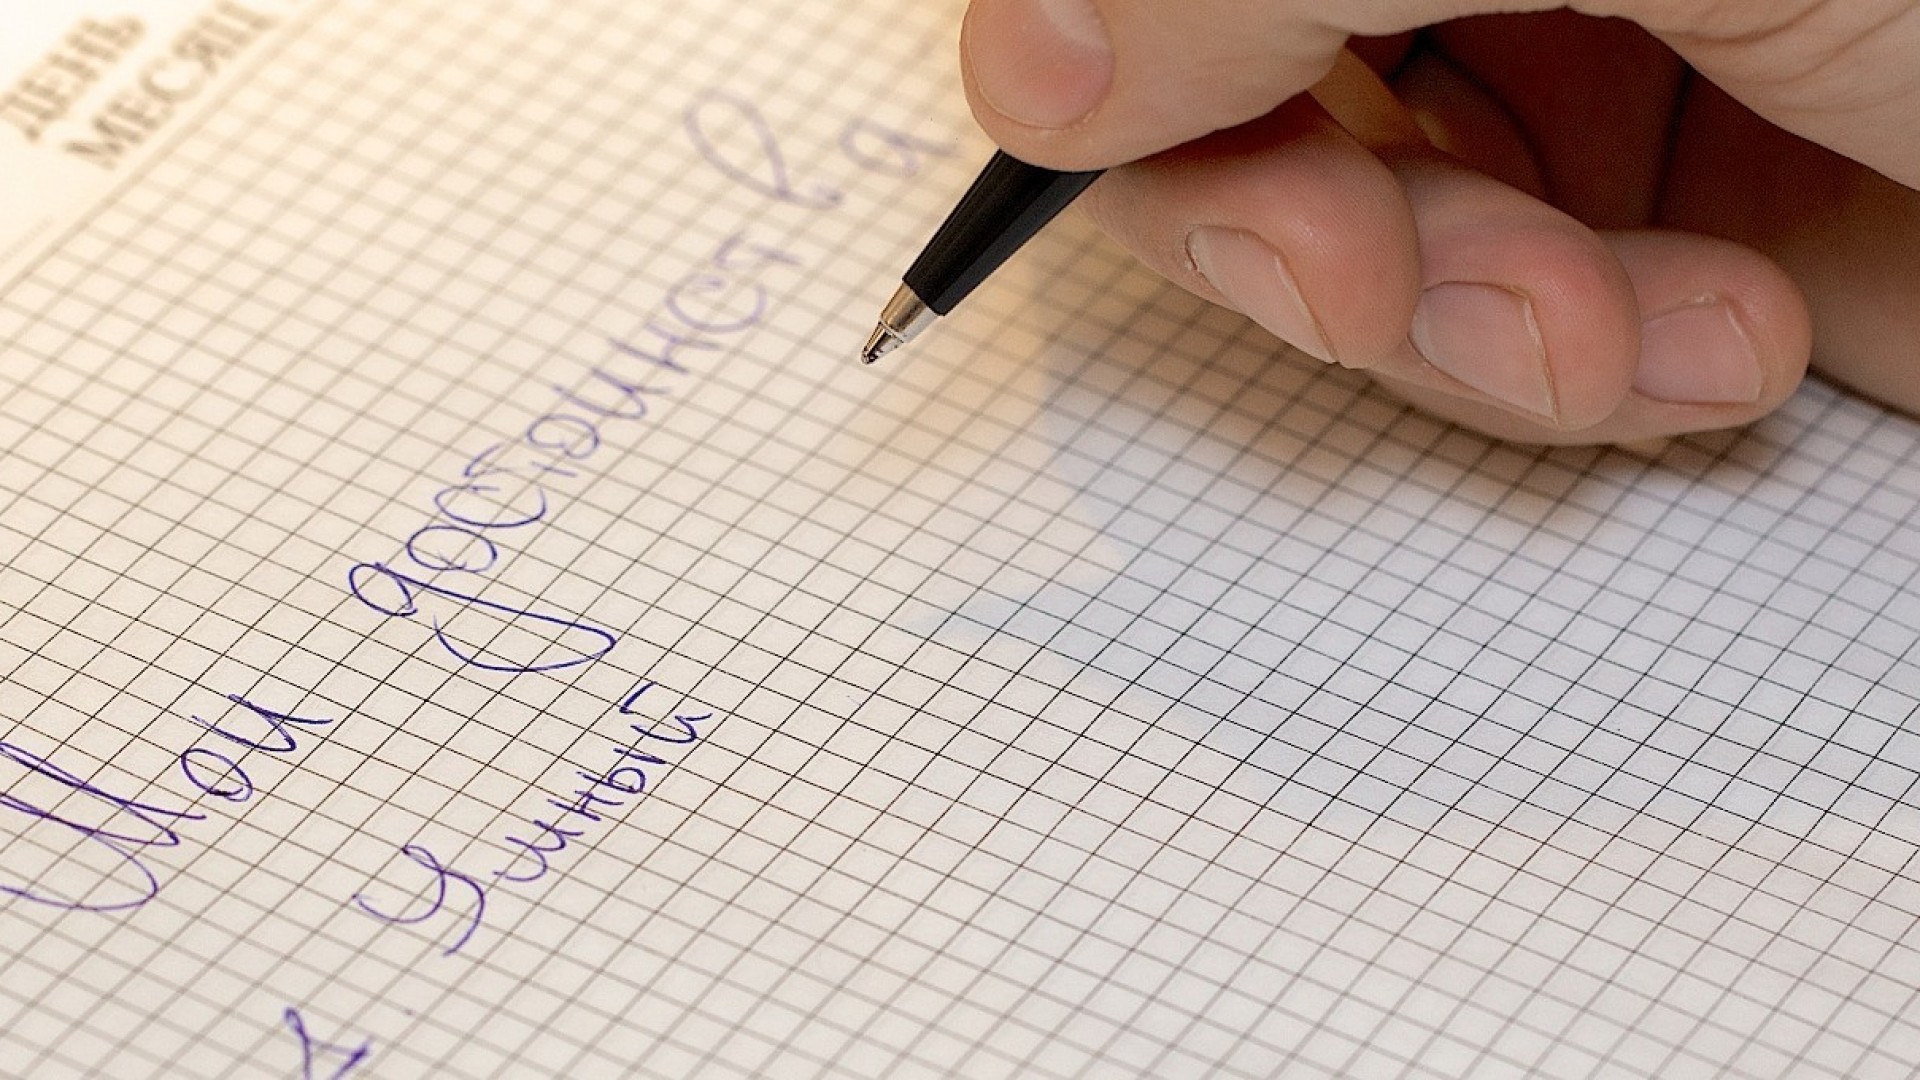 ДЕНЬ
МЕСЯЦ
Мои достоинства
1. Умный